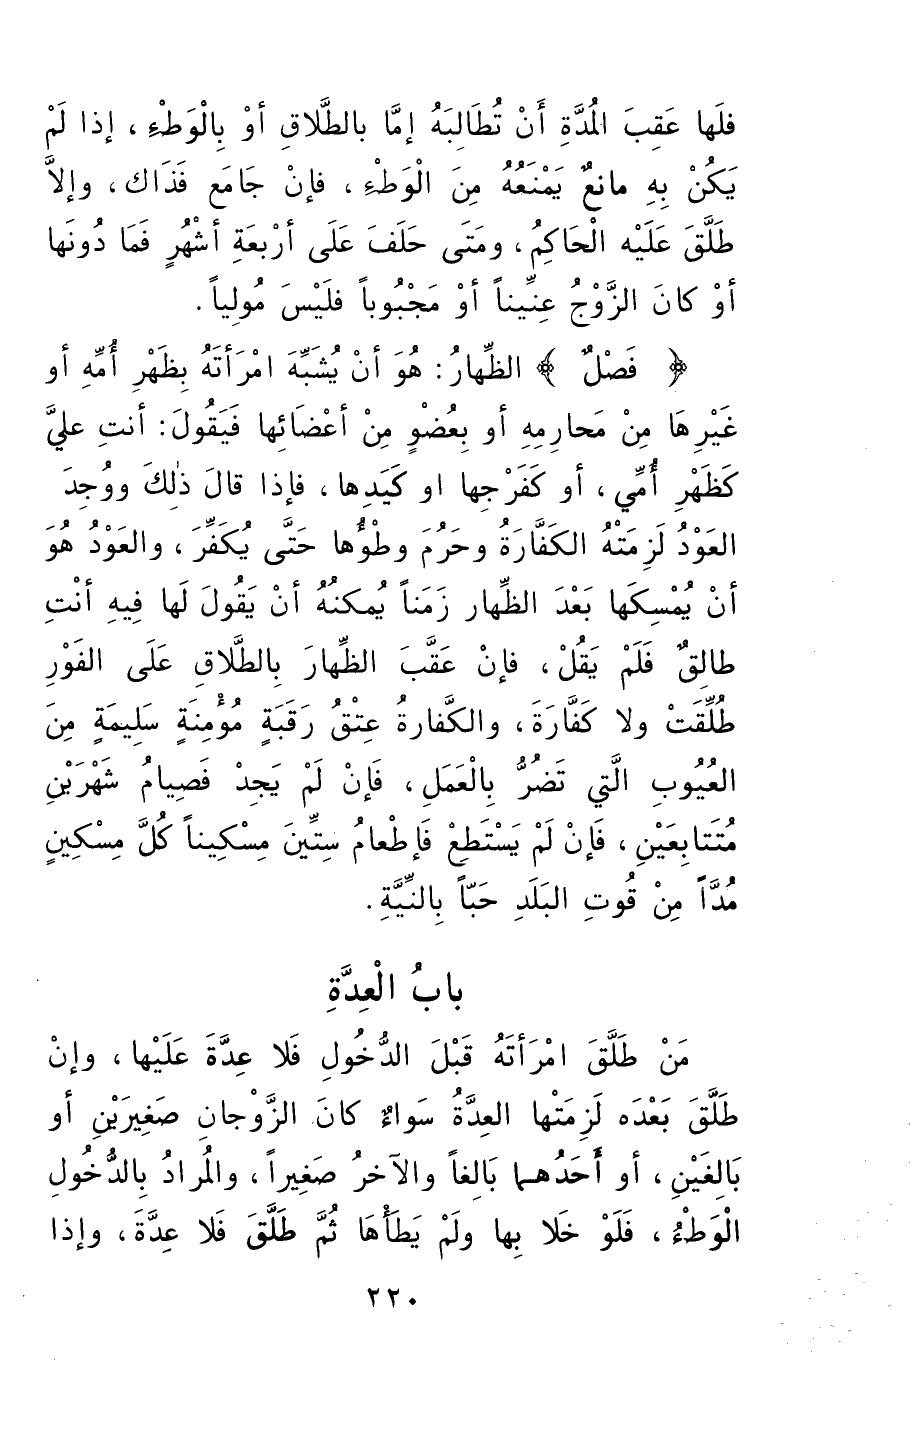 فلَها عَقِبَ المُدَّةِ أَنْ تُطَالِبَهُ إمَّا بالطَّلَاقِ أوْ بِالْوَطْءِ ، إذا لَمْ
يَكُنْ بِهِ مانعٌ يَمْنَعُهُ مِنَ الْوَطْءِ ، فإنْ جَامَع فَذَاك ، وإلاَّ
طَلَّقَ عَلَيْه الْحَاكِمُ ، ومَتَى حَلَفَ عَلَى أرْبعَةِ أشْهُرٍ فَمَا دُونَها
أوْ كانَ الزَّوْجُ عِنِّيناً أوْ مَجْبُوباً فلَيْسَ مُولِياً .
﴿ فَصْلٌ ﴾ الظِّهارُ : هُوَ أنْ يُشَبِّهَ امْرأتَهُ بِظَهْرِ أُمِّهِ أو
غَيْرِهَا مِنْ مَحارِمِهِ أو بِعُضْوٍ مِنْ أعْضَائِها فَيَقُولَ : أنتِ عليَّ
كَظَهْرِ أُمِّي ، أو كَفَرْجِها او كَيَدِها ، فإذا قالَ ذٰلِكَ ووُجِدَ
العَوْدُ لَزِمَتْهُ الكَفَّارَةُ وحَرُمَ وطْوُها حَتَّى يُكَفِّرَ ، والعَوْدُ هُوَ
أنْ يُمْسِكَها بَعْدَ الظِّهار زَمَناً يُمكنُهُ أنْ يَقُولَ لَها فِيهِ أنْتِ
طالِقٌ فَلَمْ يَقُلْ ، فإنْ عَقَّبَ الظِّهارَ بِالطَّلَاقِ عَلَى الفَوْرِ
طُلِّقَتْ ولا كَفَّارَةَ ، والكَّفارةُ عِتْقُ رَقَبَةٍ مُؤْمِنَةٍ سَلِيمَةٍ مِنَ
العُيُوبِ الَّتي تَضُرُّ بِالْعَمَلِ ، فَإنْ لَمْ يَجِدْ فَصِيامُ شَهْرَيْنِ
مُتَتابِعَيْنِ ، فَإنْ لَمْ يَسْتَطِعْ فَإطْعامُ سِتِّينَ مِسْكِيناً كُلَّ مِسْكِينٍ
مُدَّاً مِنْ قُوتِ البَلَدِ حَبّاً بِالنِّيَّةِ .
بابُ الْعِدَّةِ
مَنْ طَلَّقَ امْرَأتَهُ قَبْلَ الدُّخُولِ فَلا عِدَّةَ عَلَيْها ، وإنْ
طَلَّقَ بَعْدَه لَزِمَتْها العِدَّةُ سَواءٌ كانَ الزَّوْجانِ صَغِيرَيْنِ أو
بَالِغَيْنِ ، أو أَحَدُهما بَالِغاً والآخرُ صَغِيراً ، والمُرادُ بِالدُّخُولِ
الْوَطْءُ ، فَلَوْ خَلا بِها ولَمْ يَطَأْهَا ثُمَّ طَلَّقَ فَلا عِدَّةَ ، وإذا
٢٢٠